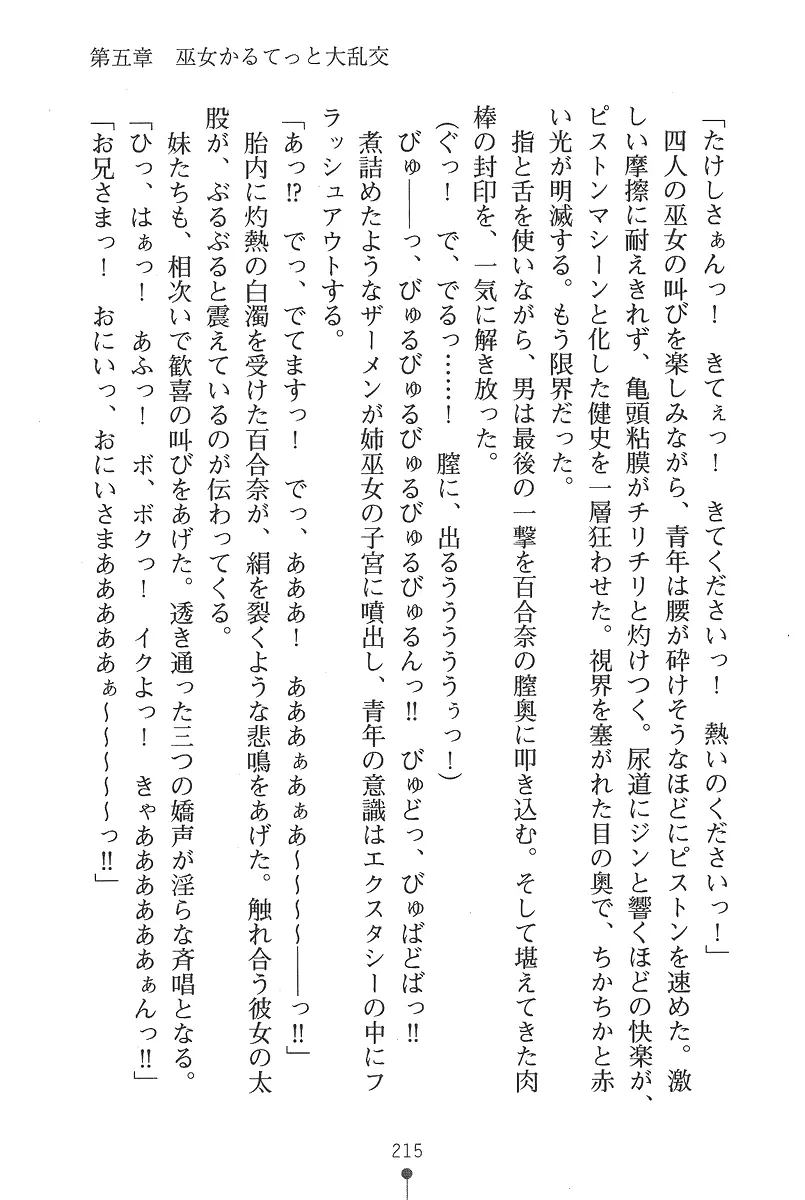 第五章　巫女かるてっと大乱交
「たけしさぁんっ！　きてぇっ！　きてくださいっ！　熱いのくださいっ！」
四人の巫女の叫びを楽しみながら、青年は腰が砕けそうなほどにピストンを速めた。激
しい摩擦に耐えきれず、亀頭粘膜がチリチリと灼けつく。尿道にジンと響くほどの快楽が、
ピストンマシーンと化した健史を一層狂わせた。視界を塞がれた目の奥で、ちかちかと赤
い光が明滅する。もう限界だった。
指と舌を使いながら、男は最後の一撃を百合奈の膣奥に叩き込む。そして堪えてきた肉
棒の封印を、一気に解き放った。
（ぐっ！　で、でるっ……！　膣に、出るうううううぅっ！）
びゅ――っ、びゅるびゅるびゅるびゅるびゅるんっ‼　びゅどっ、びゅばどばっ‼
煮詰めたようなザーメンが姉巫女の子宮に噴出し、青年の意識はエクスタシーの中にフ
ラッシュアウトする。
「あっ⁉　でっ、でてますっ！　でっ、あああ！　あああぁあぁあ～～～～――っ‼」
胎内に灼熱の白濁を受けた百合奈が、絹を裂くような悲鳴をあげた。触れ合う彼女の太
股が、ぶるぶると震えているのが伝わってくる。
妹たちも、相次いで歓喜の叫びをあげた。透き通った三つの嬌声が淫らな斉唱となる。
「ひっ、はぁっ！　あふっ！　ボ、ボクっ！　イクよっ！　きゃああああああぁんっ‼」
「お兄さまっ！　おにいっ、おにいさまああああああぁ～～～～～っ‼」
215